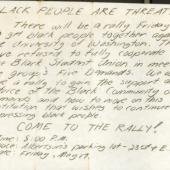 BLACK PEOPLE ARE THREAT
There will be a rally Friday
to get black people together aga
the University of Washington. Th
have refused to fully cooperate
the Black Student Union in meet
group's Five Demands. We a
a rally to gain the support a
voice of the Black Community o
demands and how to move on this
stitution that wishes to continue
pressing black people.
COME TO THE RALLY!
Time: 5:00 P.M.
Place: Albertson's parking lot - 23rd & E
Date: Friday, May 17.